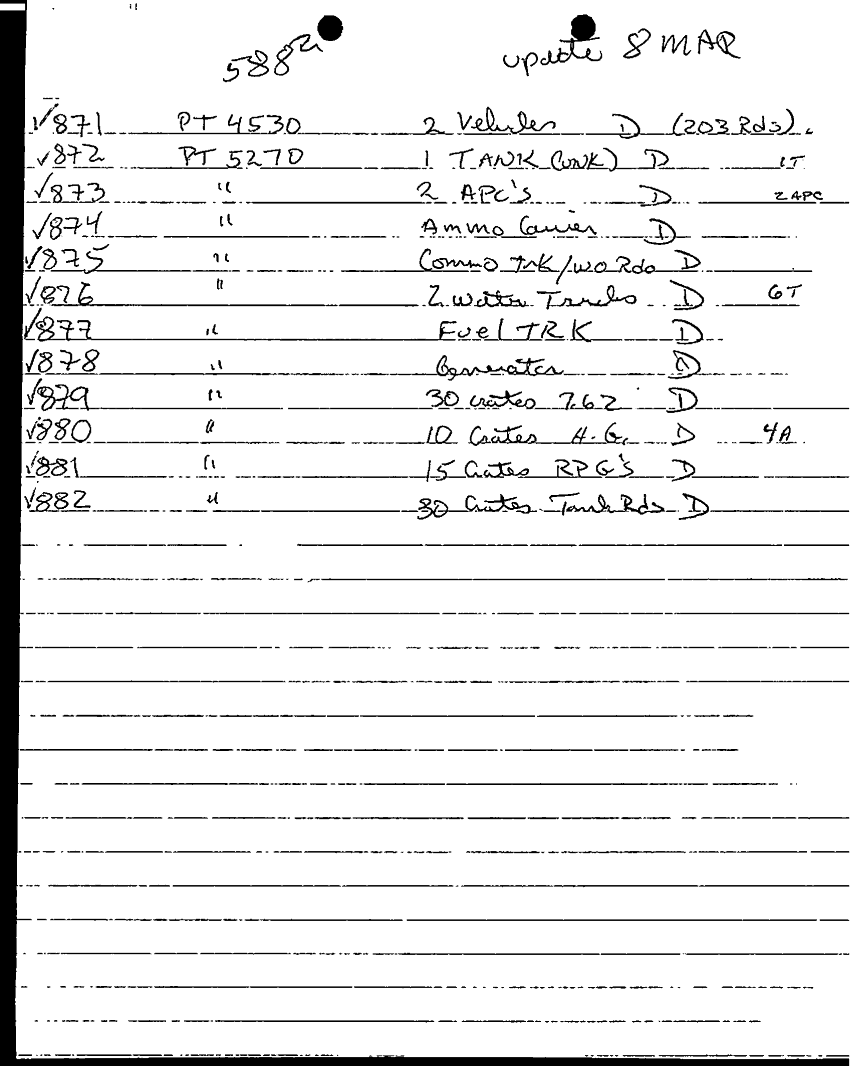 588
update 8 MAR
√871 PT 4530 2 Vehicles D (203 Rds).
√872 PT 5270 1 TANK (UNK) D 1T
√873 " 2 APC's D 2 APC
√874 " Ammo Carrier D
√875 " Commo Trk/wo Rdo D
√876 " 2 Water Trucks D 6T
√877 " Fuel TRK D
√878 " Generator D
√879 " 30 crates 7.62 D
√880 " 10 Crates H.G. D 4A
√881 " 15 Crates RPG's D
√882 " 30 Crates Tank Rds D